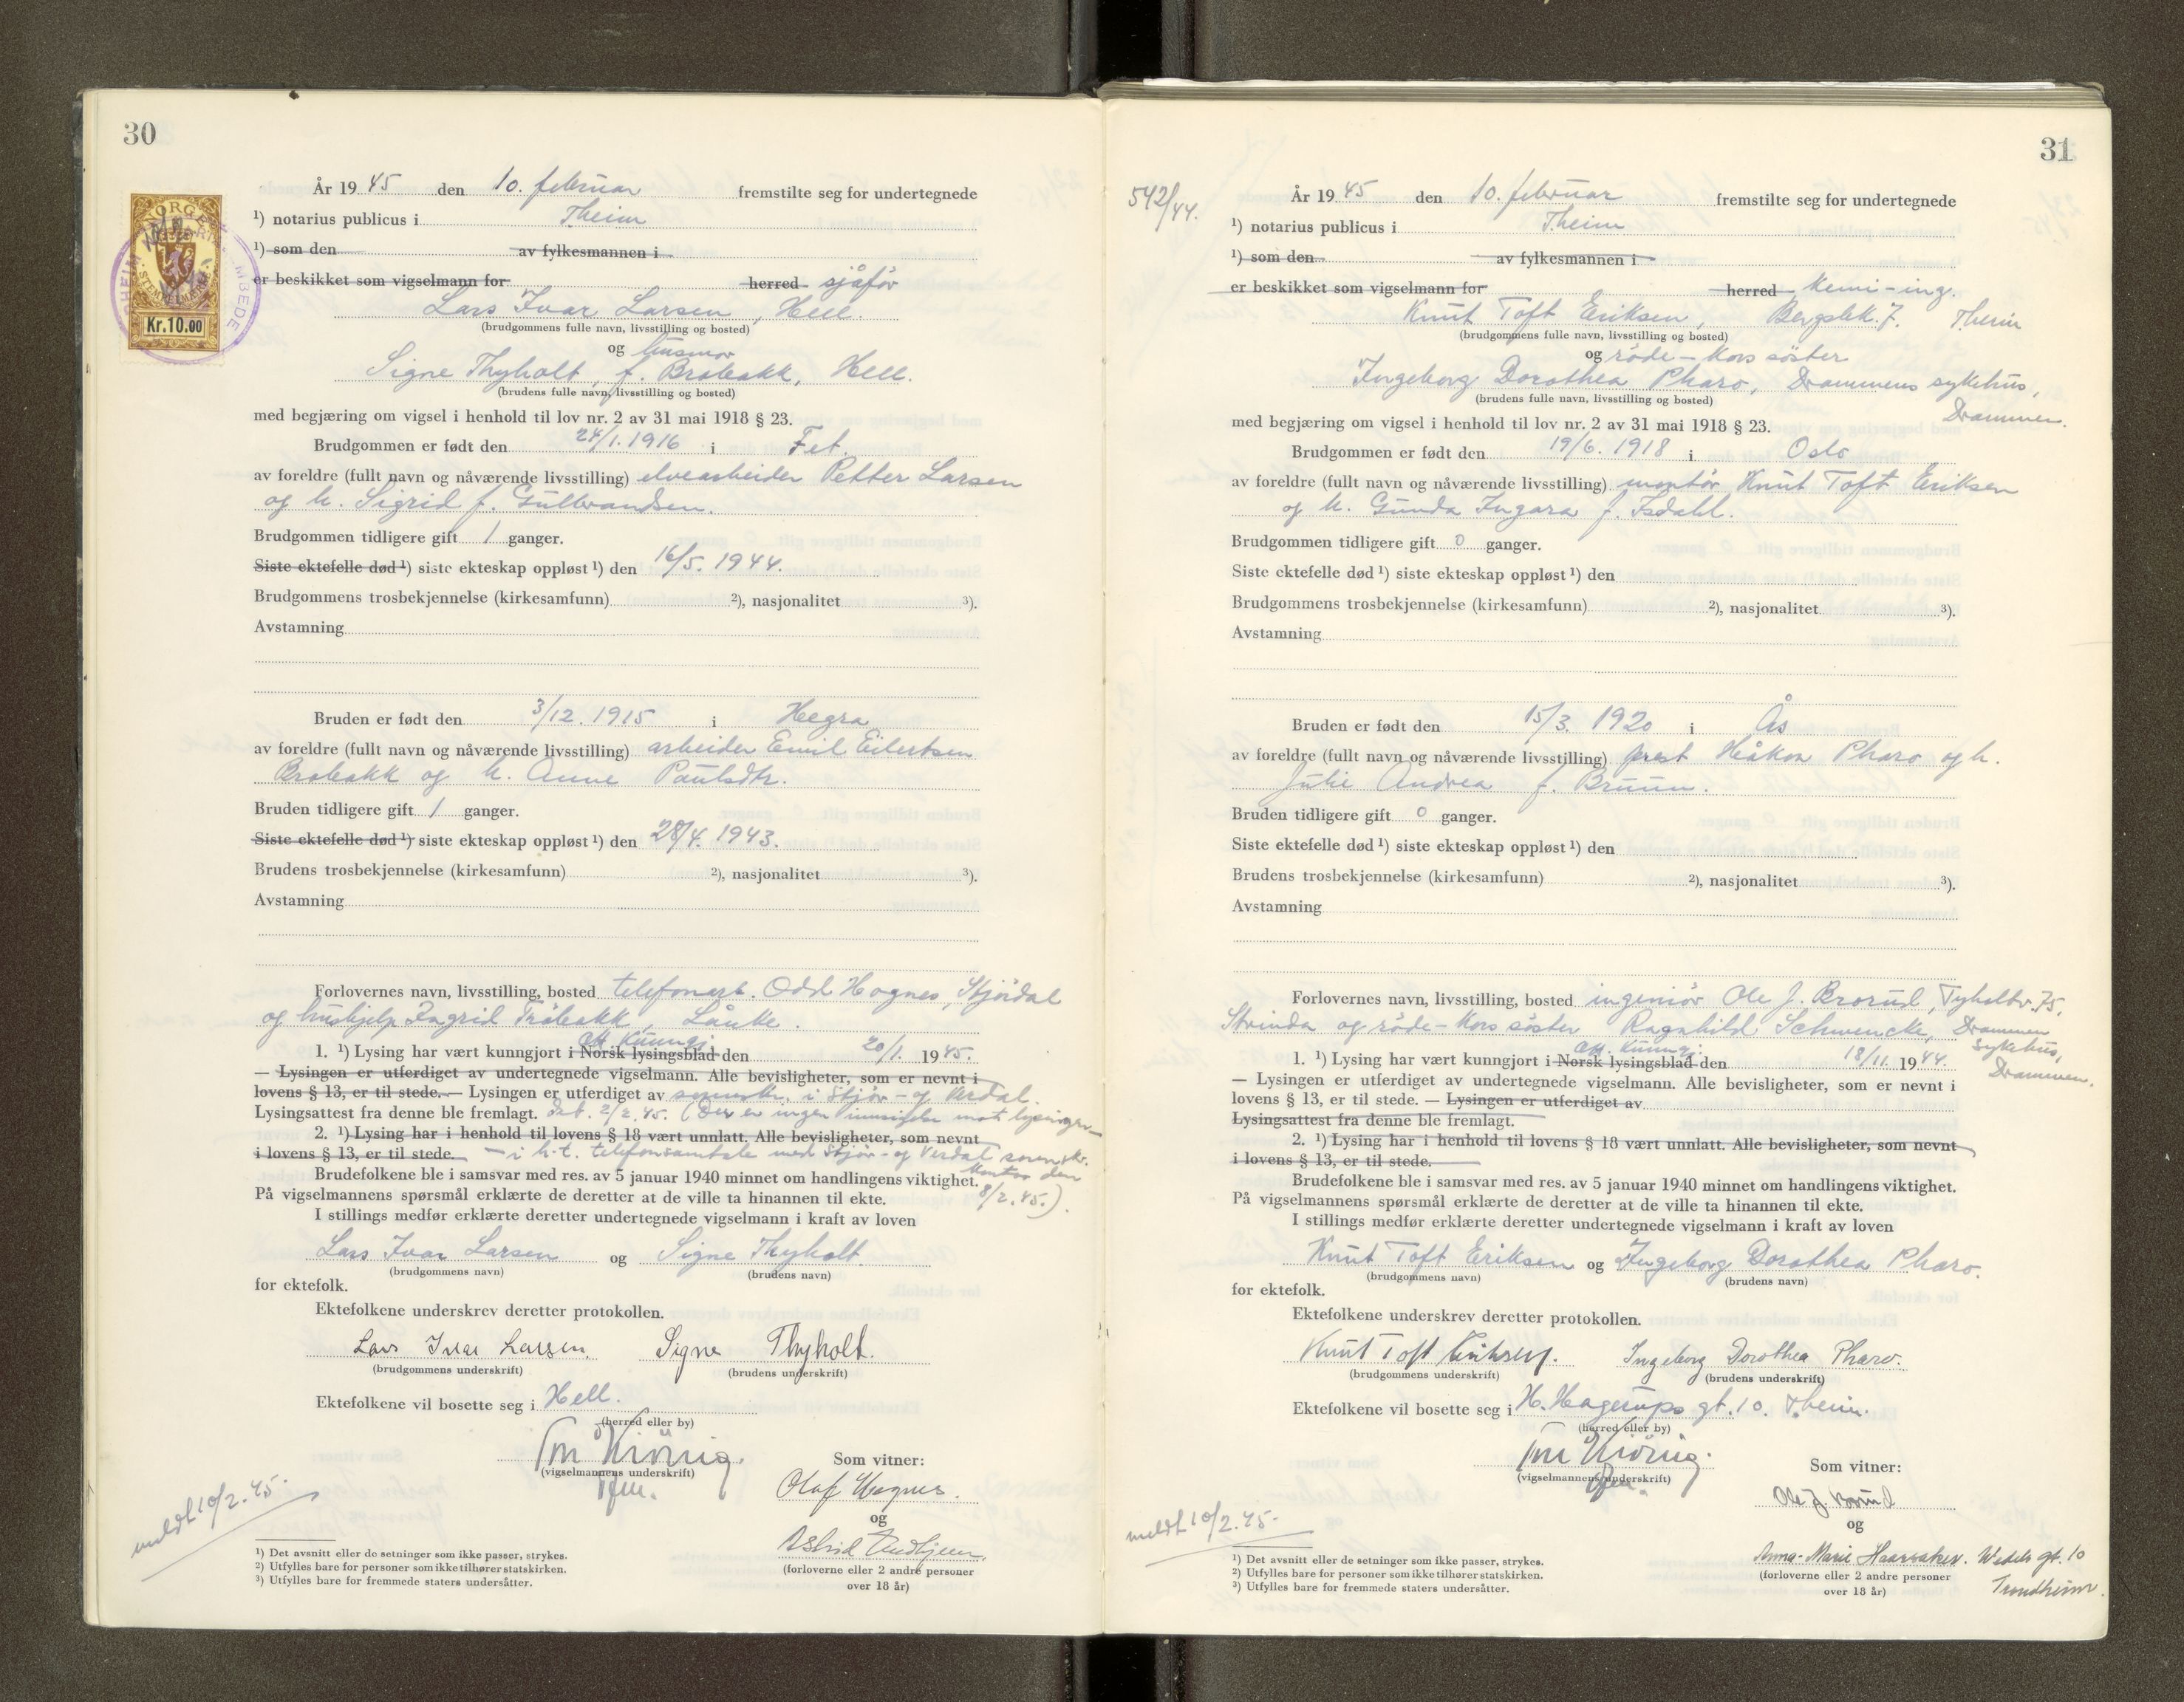 30
År 19 45 den 10. februar fremstilte seg for undertegnede
¹) notarius publicus i T.heim
¹) som den av fylkesmannen i
er beskikket som vigselmann for herred sjåfør
Lars Ivar Larsen, Hell.
(brudgommens fulle navn, livsstilling og bosted)
og husmor
Signe Thyholt, f. Brobakk, Hell.
(brudens fulle navn, livsstilling og bosted)
med begjæring om vigsel i henhold til lov nr. 2 av 31 mai 1918 § 23.
Brudgommen er født den 24/1. 1916 i Fet.
av foreldre (fullt navn og nåværende livsstilling) elvearbeider Petter Larsen
og h. Sigrid f. Gulbrandsen.
Brudgommen tidligere gift 1 ganger.
Siste ektefelle død ¹) siste ekteskap oppløst ¹) den 16/5. 1944.
Brudgommens trosbekjennelse (kirkesamfunn) ²), nasjonalitet ³).
Avstamning
Bruden er født den 3/12. 1915 i Hegra
av foreldre (fullt navn og nåværende livsstilling) arbeider Emil Eilertsen
Brobakk og h. Anne Paulsdtr.
Bruden tidligere gift 1 ganger.
Siste ektefelle død ¹) siste ekteskap oppløst ¹) den 28/4. 1943.
Brudens trosbekjennelse (kirkesamfunn) ²), nasjonalitet ³).
Avstamning
Forlovernes navn, livsstilling, bosted telefonarb. Odd Hognes, Stjørdal
og hushjelp Ingrid Trøbakk, Lånke.
off. kunngj.
1. ¹) Lysing har vært kunngjort i Norsk lysingsblad den 20/1. 1945.
— Lysingen er utferdiget av undertegnede vigselmann. Alle bevisligheter, som er nevnt i
lovens § 13, er til stede. — Lysingen er utferdiget av sorenskr. i Stjør- og Verdal.
Lysingsattest fra denne ble fremlagt. Dat. 2/2. 45. (Der er ingen innsigelse mot lysingen
2. ¹) Lysing har i henhold til lovens § 18 vært unnlatt. Alle bevisligheter, som nevnt
i lovens § 13, er til stede. — i h.t. telefonsamtale med Stjør- og Verdal sorenskr.
kontor den
Brudefolkene ble i samsvar med res. av 5 januar 1940 minnet om handlingens viktighet.
På vigselmannens spørsmål erklærte de deretter at de ville ta hinannen til ekte. 8/2. 45.)
I stillings medfør erklærte deretter undertegnede vigselmann i kraft av loven
Lars Ivar Larsen og Signe Thyholt
(brudgommens navn) (brudens navn)
for ektefolk.
Ektefolkene underskrev deretter protokollen.
Lars Ivar Larsen. Signe Thyholt.
(brudgommens underskrift) (brudens underskrift)
Ektefolkene vil bosette seg i Hell.
(herred eller by)
(vigselmannens underskrift)
Som vitner:
og
(forloverne eller 2 andre personer
over 18 år)
meldt 10/2. 45.
¹) Det avsnitt eller de setninger som ikke passer, strykes.
²) Utfylles bare for personer som ikke tilhører statskirken.
³) Utfylles bare for fremmede staters undersåtter.
NORGE
STEMPELMERKE
Kr.10.00
31
542/44.
År 19 45 den 10. februar fremstilte seg for undertegnede
¹) notarius publicus i T.heim
¹) som den av fylkesmannen i
er beskikket som vigselmann for herred kemi-ing.
Knut Toft Eriksen, Bergslik. 7. T.heim
(brudgommens fulle navn, livsstilling og bosted)
og røde-kors søster
Ingeborg Dorothea Pharo, Drammens sykehus,
Drammen.
(brudens fulle navn, livsstilling og bosted)
med begjæring om vigsel i henhold til lov nr. 2 av 31 mai 1918 § 23.
Brudgommen er født den 19/6. 1918 i Oslo
av foreldre (fullt navn og nåværende livsstilling) montør Knut Toft Eriksen
og h. Gunda Ingara f. Isdahl.
Brudgommen tidligere gift 0 ganger.
Siste ektefelle død ¹) siste ekteskap oppløst ¹) den
Brudgommens trosbekjennelse (kirkesamfunn) ²), nasjonalitet ³).
Avstamning
Bruden er født den 15/3. 1920 i Ås
av foreldre (fullt navn og nåværende livsstilling) prest Håkon Pharo og h.
Julie Andrea f. Bruun.
Bruden tidligere gift 0 ganger.
Siste ektefelle død ¹) siste ekteskap oppløst ¹) den
Brudens trosbekjennelse (kirkesamfunn) ²), nasjonalitet ³).
Avstamning
Forlovernes navn, livsstilling, bosted ingeniør Ole J. Brorud, Tyholtv. 75,
Strinda og røde-kors søster Ragnhild Schwencke, Drammen
sykehus,
Drammen.
off. kunngj.
1. ¹) Lysing har vært kunngjort i Norsk lysingsblad den 18/11. 1944.
— Lysingen er utferdiget av undertegnede vigselmann. Alle bevisligheter, som er nevnt i
lovens § 13, er til stede. — Lysingen er utferdiget av
Lysingsattest fra denne ble fremlagt.
2. ¹) Lysing har i henhold til lovens § 18 vært unnlatt. Alle bevisligheter, som nevnt
i lovens § 13, er til stede.
Brudefolkene ble i samsvar med res. av 5 januar 1940 minnet om handlingens viktighet.
På vigselmannens spørsmål erklærte de deretter at de ville ta hinannen til ekte.
I stillings medfør erklærte deretter undertegnede vigselmann i kraft av loven
Knut Toft Eriksen og Ingeborg Dorothea Pharo.
(brudgommens navn) (brudens navn)
for ektefolk.
Ektefolkene underskrev deretter protokollen.
Knut Toft Eriksen. Ingeborg Dorothea Pharo.
(brudgommens underskrift) (brudens underskrift)
Ektefolkene vil bosette seg i H. Hagerups gt. 10. T.heim.
(herred eller by)
(vigselmannens underskrift)
Som vitner:
Ole J Brorud
og
Anna-Marie Haarsaker. Wedels gt. 10
Trondheim.
(forloverne eller 2 andre personer
over 18 år)
meldt 10/2. 45.
¹) Det avsnitt eller de setninger som ikke passer, strykes.
²) Utfylles bare for personer som ikke tilhører statskirken.
³) Utfylles bare for fremmede staters undersåtter.